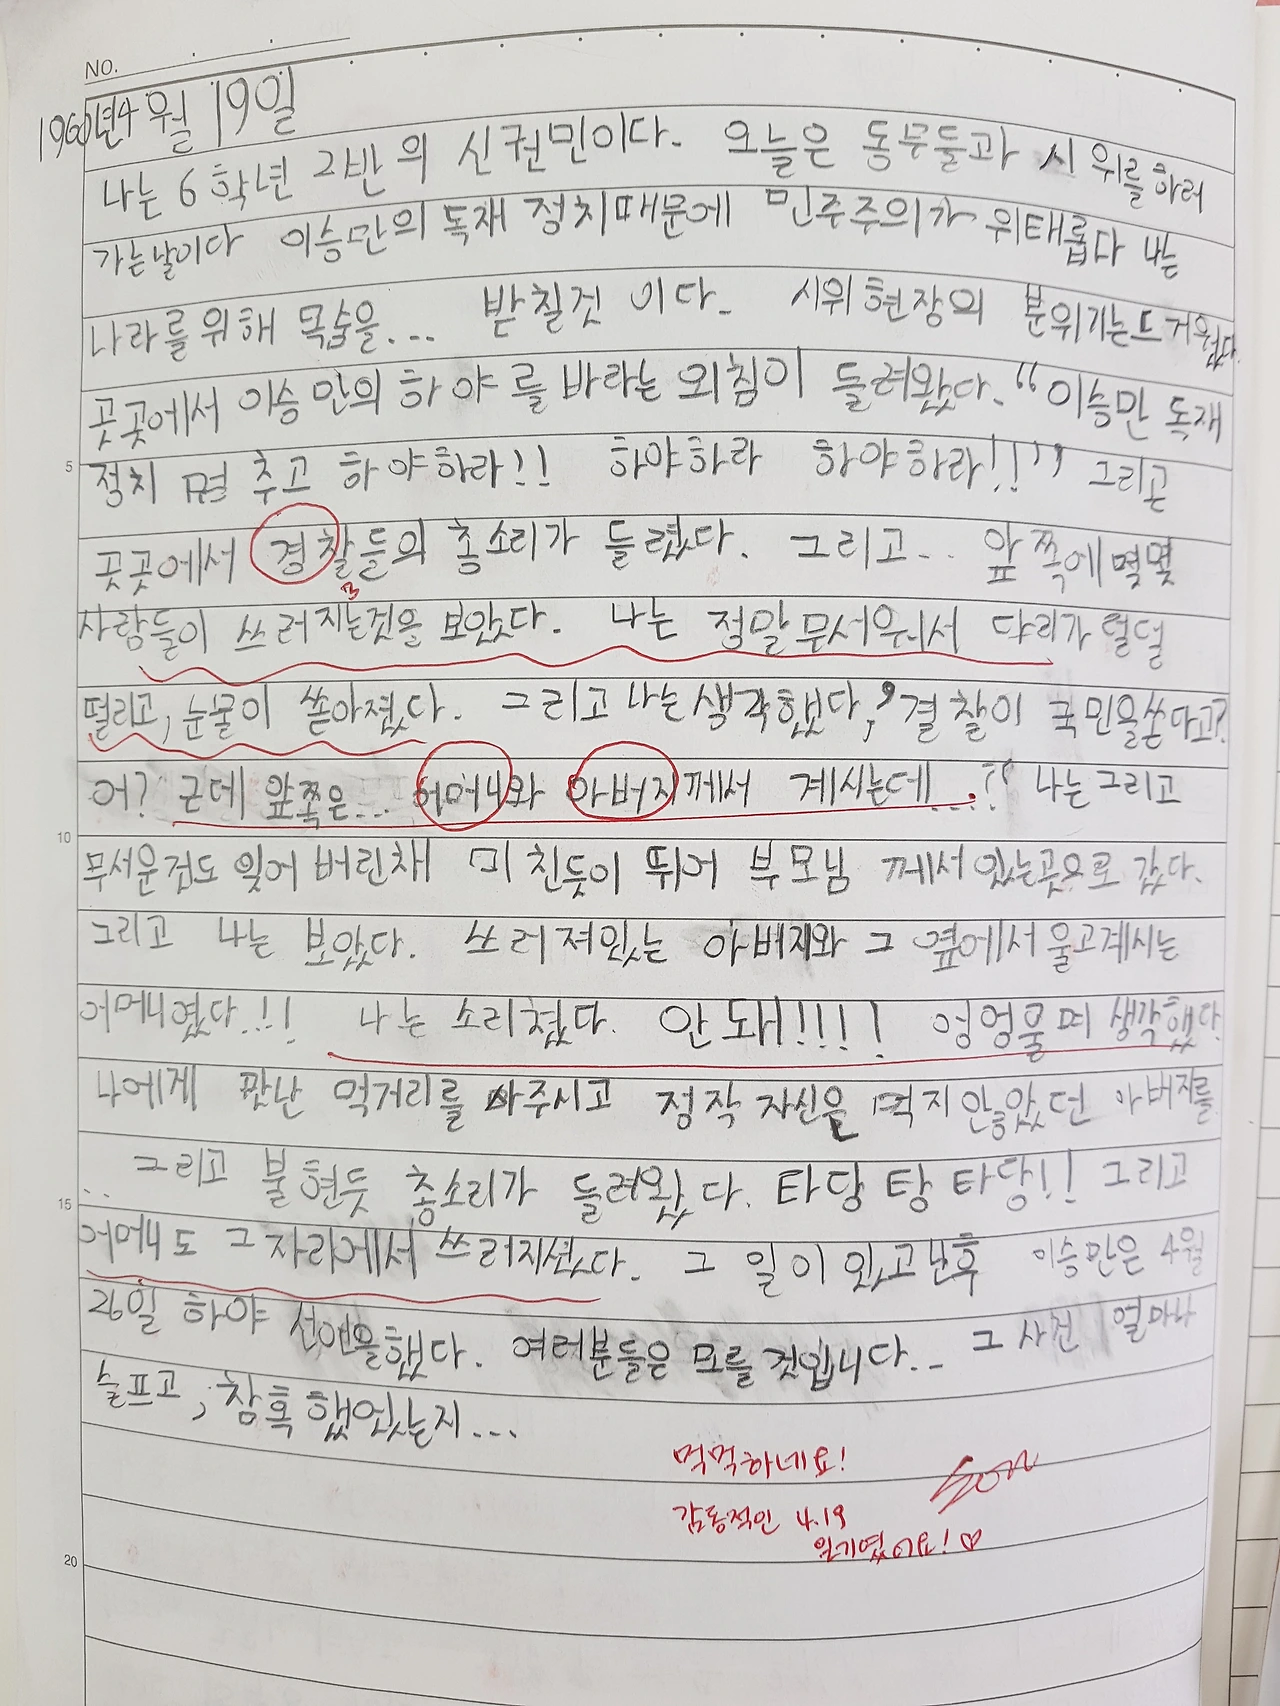 NO.
1960년4월 19일
나는 6학년 2반의 신권민이다. 오늘은 동무들과 시위를 하러
가는날이다 이승만의 독재 정치때문에 민주주의가 위태롭다 나는
나라를위해 목숨을... 받칠것 이다. 시위현장의 분위기는뜨거웠다.
곳곳에서 이승만의 하야를바라는 외침이 들려왔다. "이승만 독재
5
정치 멈추고 하야하라!! 하야하라 하야하라!!" 그리곤
곳곳에서 경찰들의 총소리가 들렸다. 그리고.. 앞쪽에몇몇
사람들이 쓰러지는것을 보았다. 나는 정말무서워서 다리가덜덜
떨리고, 눈물이 쏟아졌다. 그리고나는생각했다, "경찰이 국민을쏜다고?
어? 근데 앞쪽은... 어머니와 아버지께서 계시는데....?" 나는그리고
10
무서운것도 잊어버린채 미친듯이 뛰어 부모님 께서있는곳으로 갔다.
그리고 나는 보았다. 쓰러져있는 아버지와 그 옆에서울고계시는
어머니였다.!! 나는 소리쳤다. 안돼!!!! 엉엉울며 생각했다
나에게 맛난 먹거리를 사주시고 정작 자신은 먹지않았던 아버지를
.. 그리고 불현듯 총소리가 들려왔다. 타당탕타당!! 그리고
15
어머니도 그자리에서쓰러지셨다. 그 일이있고난후 이승만은 4월
26일 하야 선언을했다. 여러분들은 모를것입니다.. 그 사건 얼마나
슬프고, 참혹했었는지...
먹먹하네요!
Son
감동적인 4.19
일기였어요! ♡
20